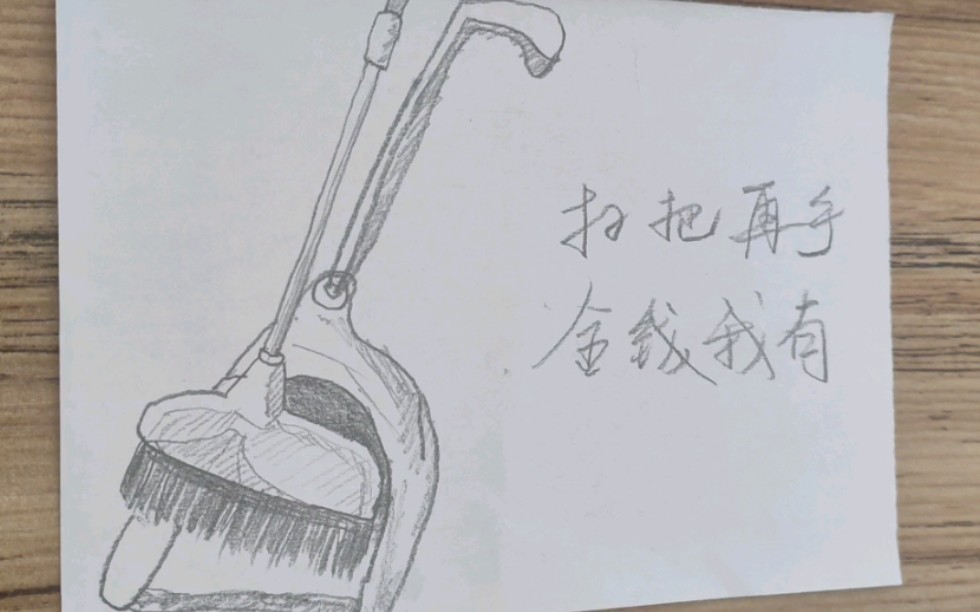 扫把再手
金钱我有